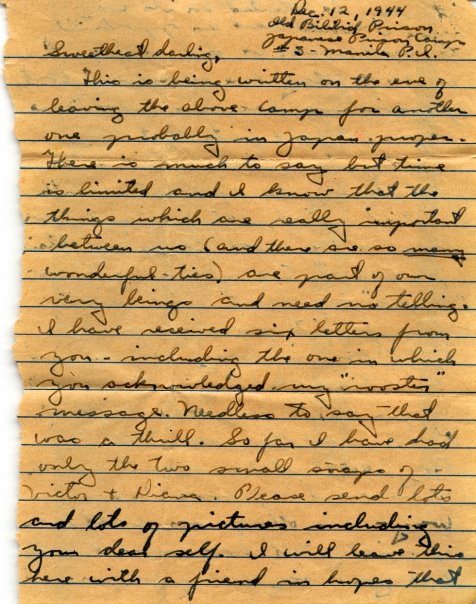 Dec. 12, 1944
Old Bilibid Prison
Japanese Prison Camp
# 5 - Manila P.I.
Sweetheart darling,
This is being written on the eve of
leaving the above camp for another
one probably in Japan proper.
There is much to say but time
is limited and I know that the
things which are really important
between us (and there are so many
wonderful ties) are part of our
very beings and need no telling.
I have received six letters from
you - including the one in which
you acknowledged my "rooster"
message. Needless to say that
was a thrill. So far I have had
only the two small snaps of
Victor + Diana. Please send lots
and lots of pictures including
your dear self. I will leave this
here with a friend in hopes that